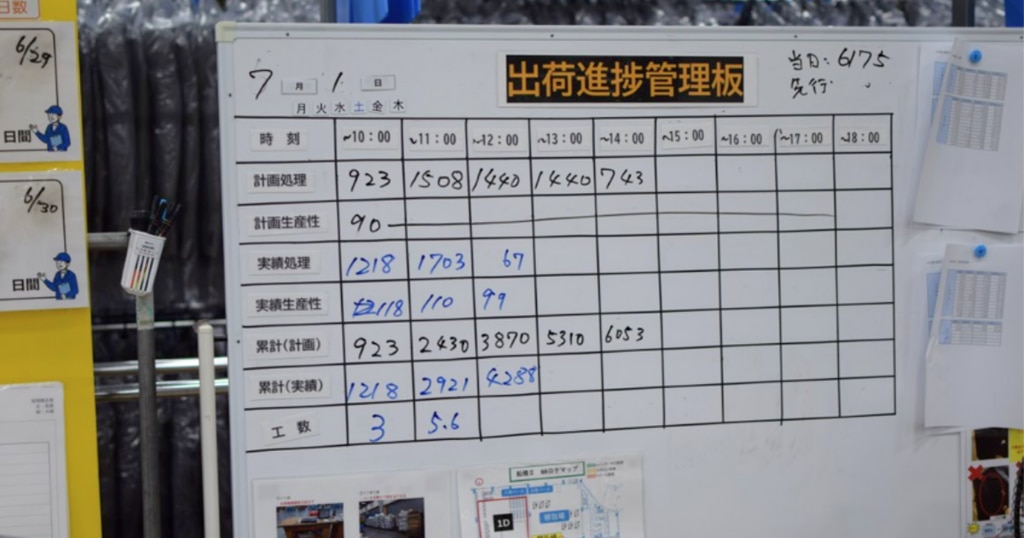 日数
6/29
日間
6/30
日間
7 月 1 日
月 火 水 土 金 木
出荷進捗管理板
当日: 6175
先行
時 刻 ~10:00 ~11:00 ~12:00 ~13:00 ~14:00 ~15:00 ~16:00 ~17:00 ~18:00
計画処理 923 1508 1440 1440 743
計画生産性 90
実績処理 1218 1703 67
実績生産性 118 110 99
累計(計画) 923 2430 3870 5310 6053
累計(実績) 1218 2921 4288
工 数 3 5.6
1D